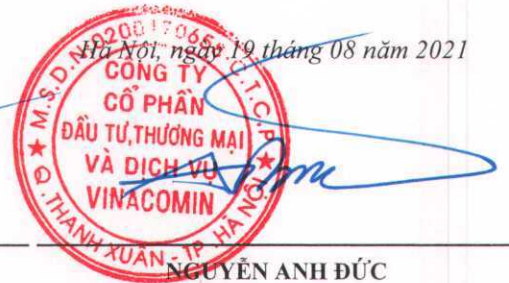 Hà Nội, ngày 19 tháng 08 năm 2021
CÔNG TY
CỔ PHẦN
ĐẦU TƯ, THƯƠNG MẠI
VÀ DỊCH VỤ
VINACOMIN
Q. THANH XUÂN - TP. HÀ NỘI
NGUYỄN ANH ĐỨC